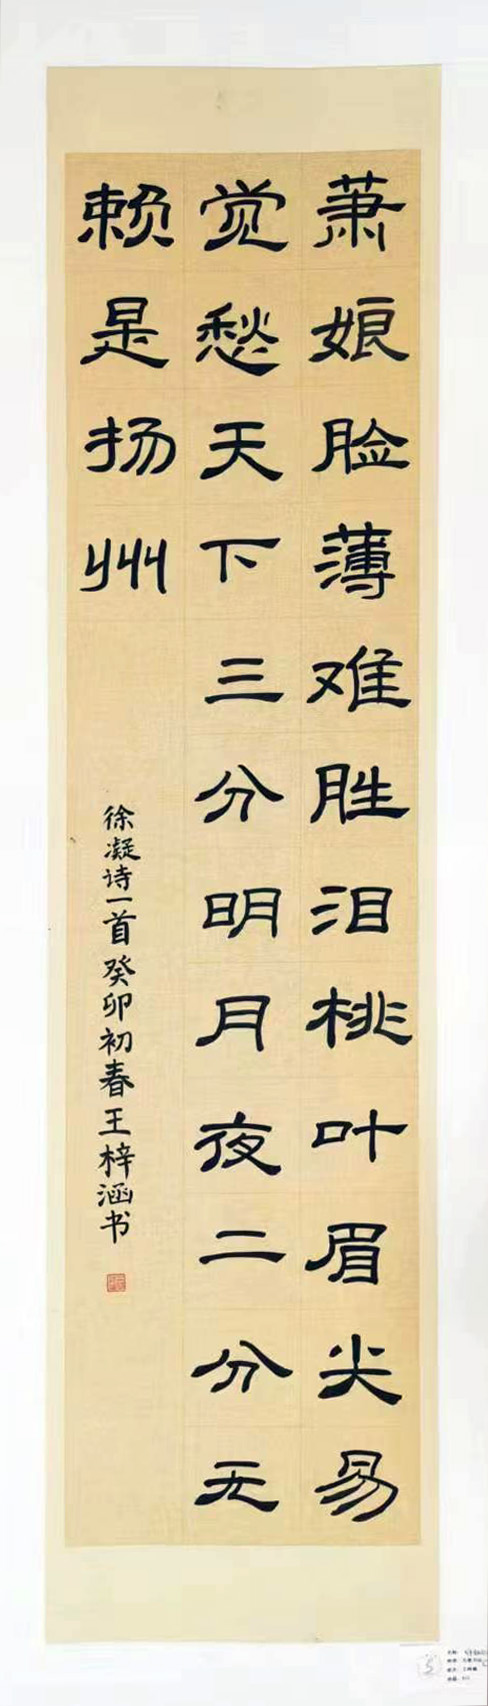 萧娘脸薄难胜泪桃叶眉尖易
觉愁天下三分明月夜二分无
赖是扬州
徐凝诗一首癸卯初春王梓涵书
5